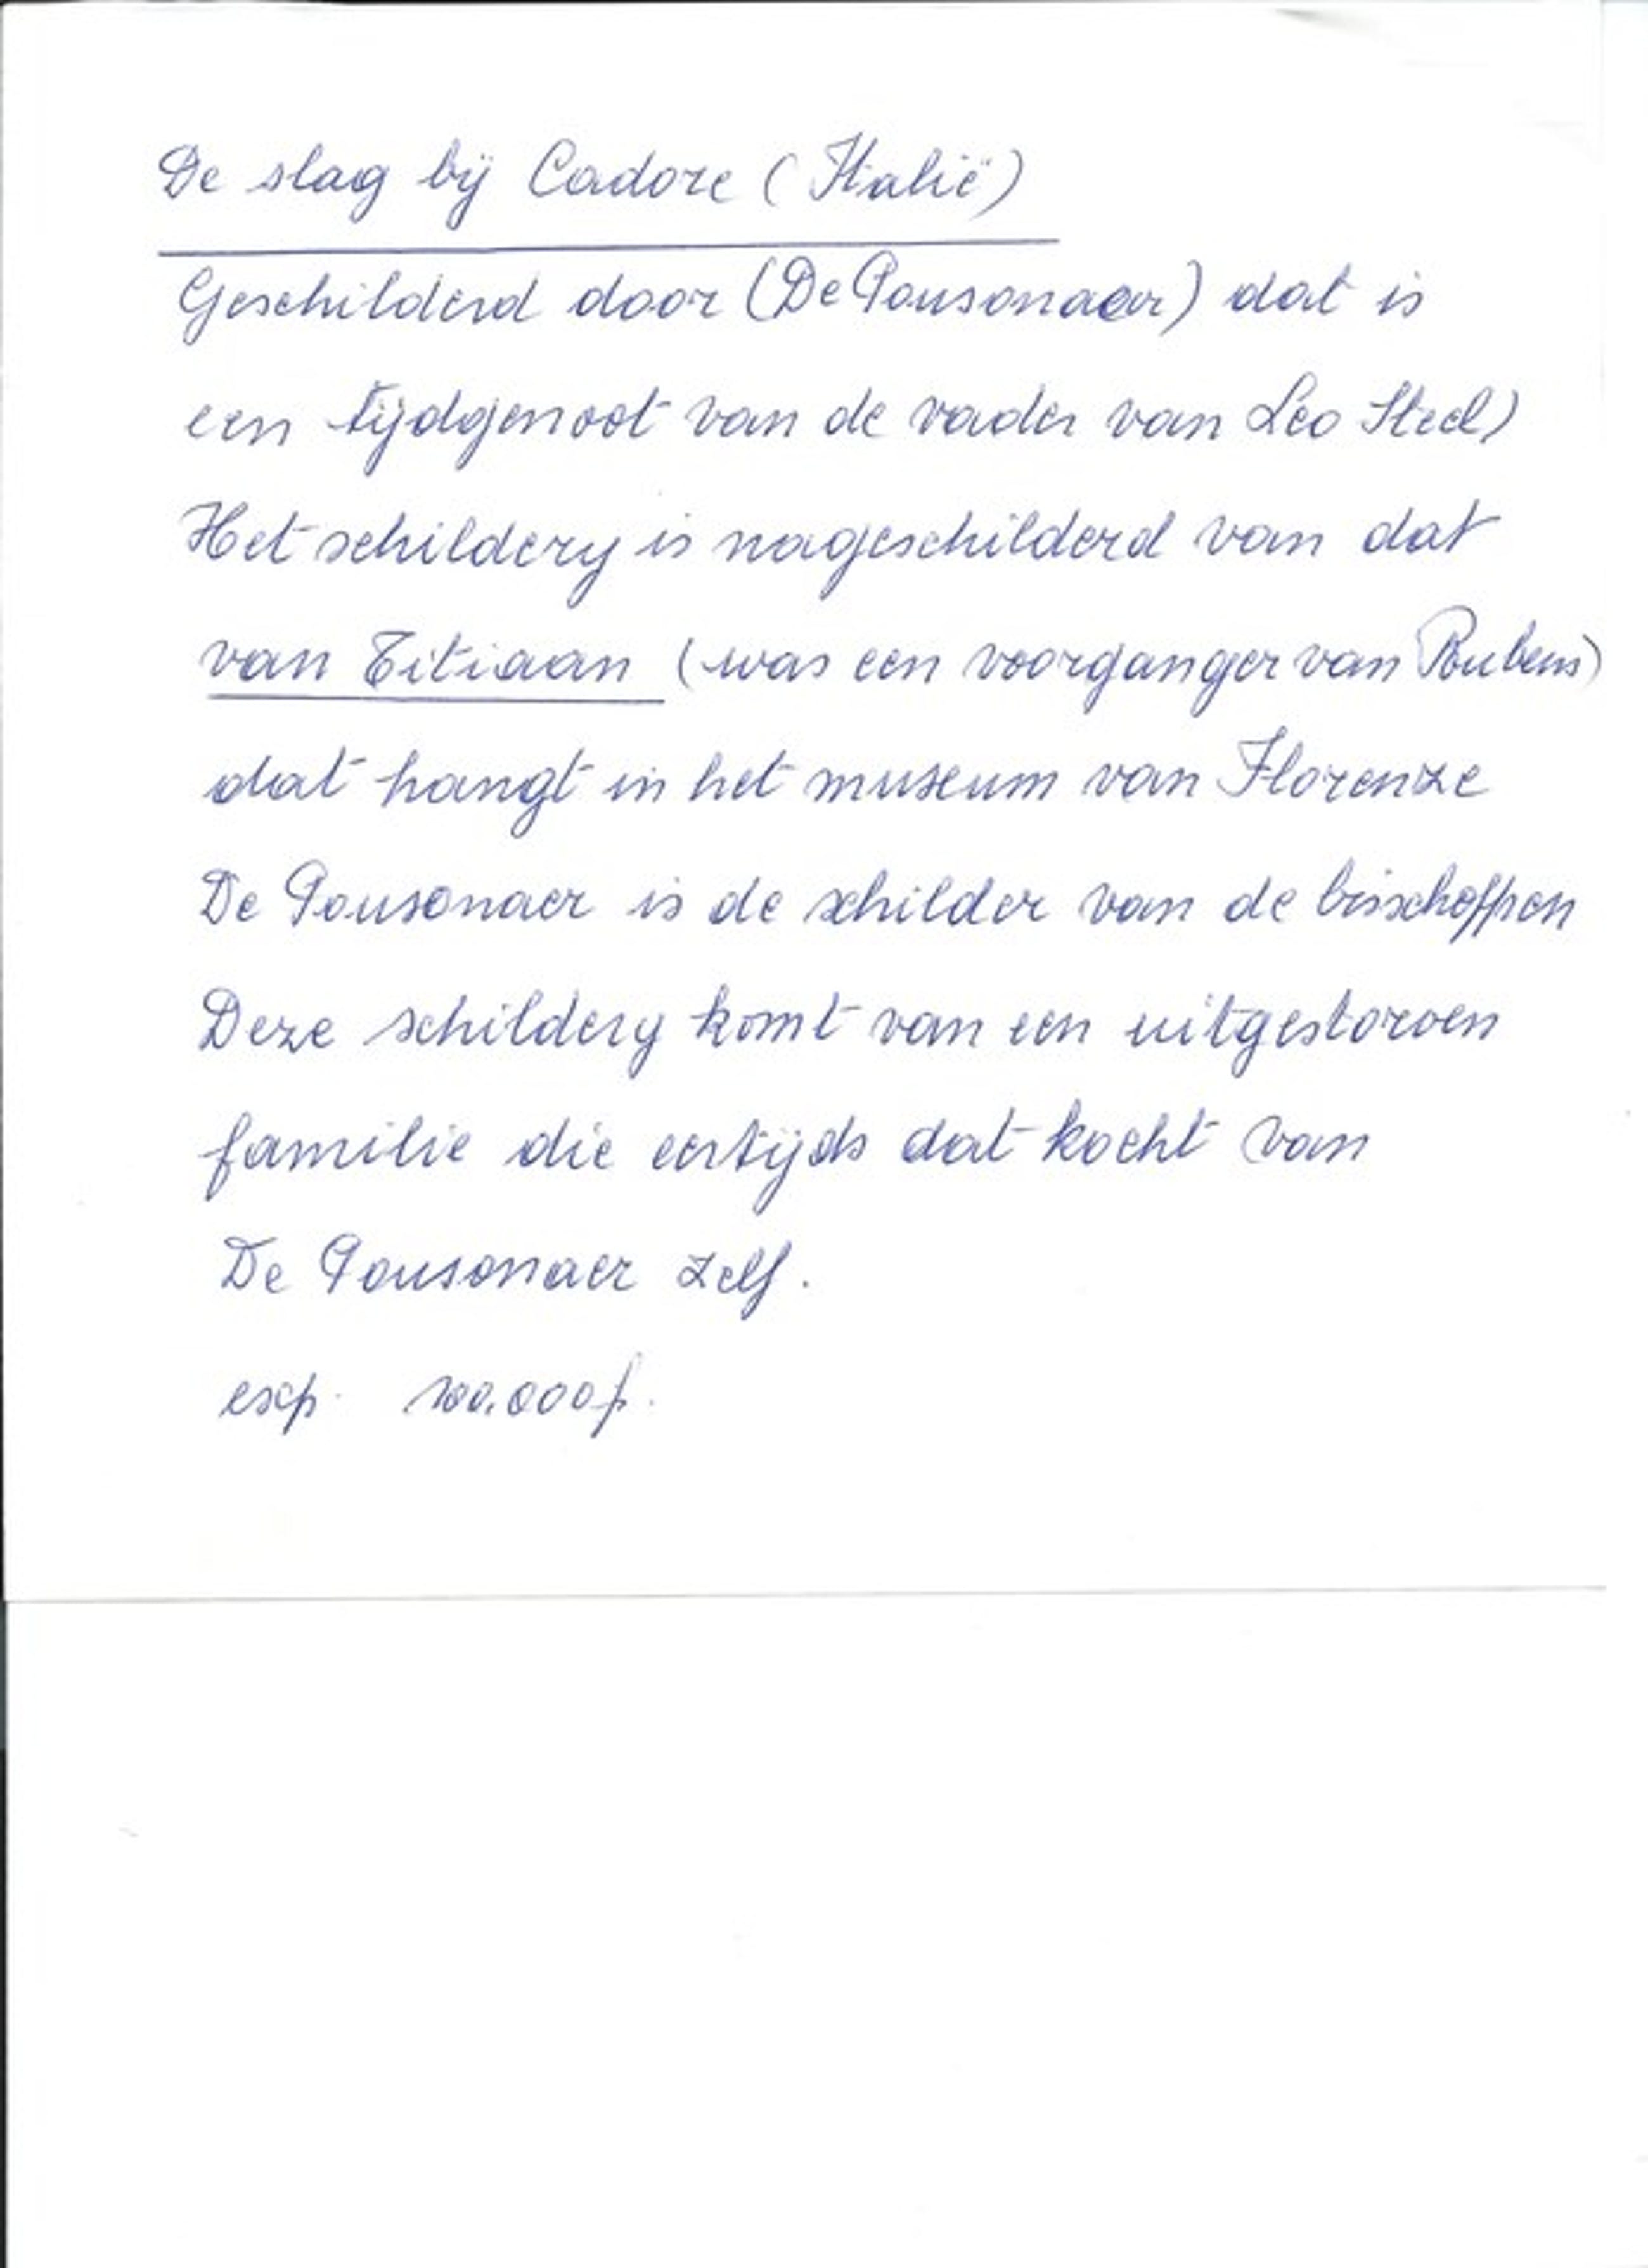 De slag bij Cadore (Italië)
Geschilderd door (De Pousonaer) dat is
een tijdgenoot van de vader van Leo Steel)
Het schildery is nageschilderd van dat
van Titiaan (was een voorganger van Rubens)
dat hangt in het museum van Florenze
De Pousonaer is de schilder van de bisschoppen
Deze schildery komt van een uitgestorven
familie die eertijds dat kocht van
De Pousonaer zelf.
exp. 100.000f.